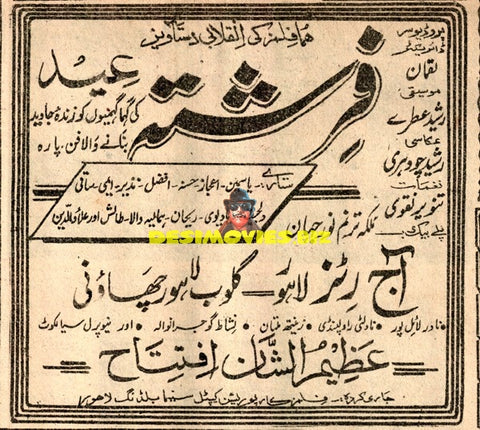 ہما فلمز کی انقلابی دستاویز
فرشتہ
عید
کی گہما گہمیوں کو زندۂ جاوید
بنانے والا فن پارہ
پروڈیوسر
ڈائریکٹر
لقمان
موسیقی
رشید عطرے
عکاسی
رشید چودہری
نغمات
تنویر نقوی
پلے بیک
ملکہ ترنم نورجہاں
ستارے: یاسمین۔ اعجاز۔ حسنہ۔ افضل۔ نذیر۔
ریحان۔ ہمالیہ والا۔ طالش اور علاؤالدین
DESIMOVIES.BIZ
آج رٹز لاہور۔ گلوب لاہور چھاؤنی
نادر لائل پور • ناولٹی راولپنڈی • زینتھ ملتان • نشاط گوجرانوالہ • اور نیو پرل سیالکوٹ
عظیم الشان افتتاح
جاری کردہ:۔ فلمز کارپوریشن کیپٹل سینما بلڈنگ لاہور